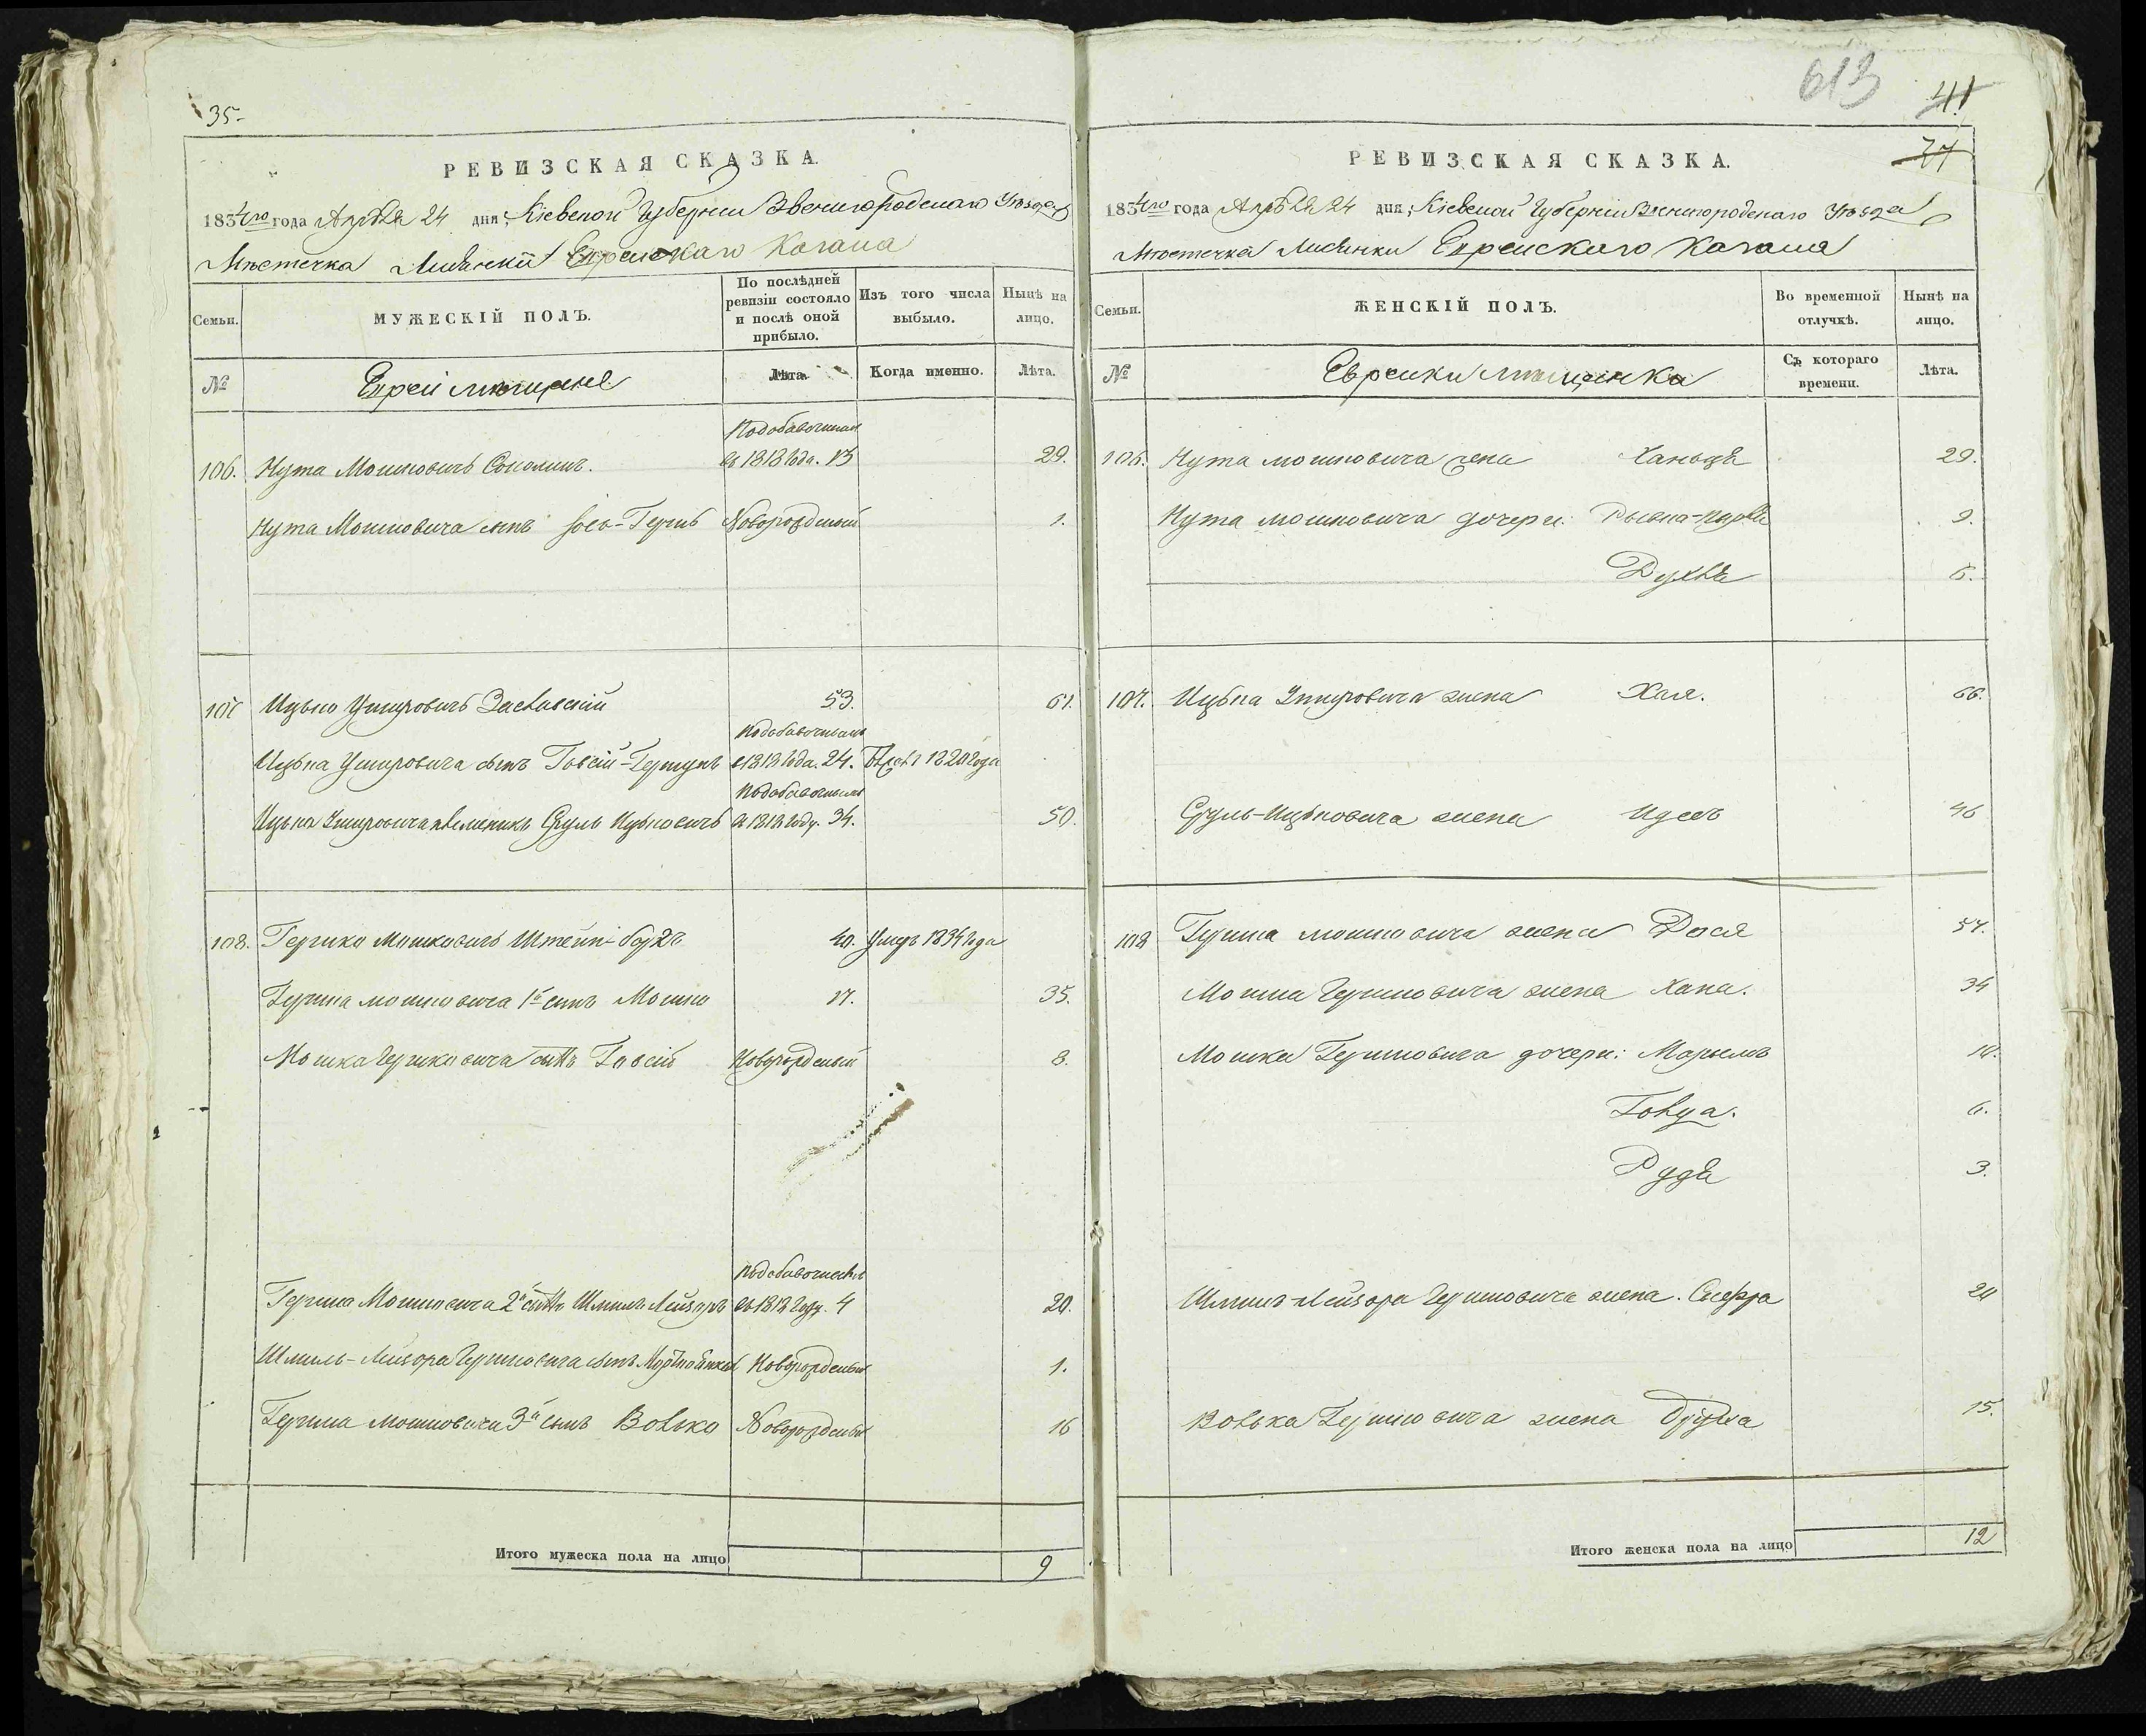 35.
РЕВИЗСКАЯ СКАЗКА.
1834го года Апрѣля 24 дня; Кіевской Губерніи Звенигородскаго Уѣзда
Мѣстечка Лисянки Еврейскаго Кагала
Семьи.
МУЖЕСКІЙ ПОЛЪ.
По послѣдней ревизіи состояло и послѣ оной прибыло.
Изъ того числа выбыло.
Нынѣ на лицо.
№
Евреи мѣщане
Лѣта.
Когда именно.
Лѣта.
106. Нута Мошковичъ Соколикъ. 1818 года. 13 29.
Нута Мошковича сынъ Іось-Гершъ Новорожденный 1.
107 Ицько Умеровичъ Заславскій 53. 61.
Ицька Умеровича сынъ Говсій-Гершунъ 1818 года. 24. 1820 года
Ицька Умеровича племяникъ Сруль Ицковичъ 1818 году. 34. 50.
108. Гершко Мошковичъ Штейнборгъ 40. Умеръ 1834 года
Гершка мошковича 1й сынъ Мошко 17. 35.
Мошка Гершковича сынъ Говсій Новорожденный 8.
Гершка Мошковича 2й сынъ Шмиль Лейзоръ 1818 году. 4 20.
Шмиль-Лейзора Гершковича сынъ Новорожденный 1.
Гершка мошковича 3й сынъ Волько Новорожденный 16
Итого мужеска пола на лицо 9
613
41
РЕВИЗСКАЯ СКАЗКА.
1834го года Апрѣля 24 дня; Кіевской Губерніи Звенигородскаго Уѣзда
Мѣстечка Лисянки Еврейскаго Кагала
Семьи.
ЖЕНСКІЙ ПОЛЪ.
Во временной отлучкѣ.
Нынѣ на лицо.
№
Еврейки мѣщанка
Съ котораго времени.
Лѣта.
106. Нута мошковича жена Ханьця 29.
Нута мошковича дочери: Рывка-перля 9.
Рухля 6.
107. Ицька Умеровича жена Хая. 66.
Сруль-Ицковича жена Идесъ 46
108 Гершка мошковича жена Дося 57.
Мошка Гершковича жена Хана. 34
Мошка Гершковича дочери: Марьямъ 10.
Голда. 6.
Рудя 3.
Шмиль-Лейзора Гершковича жена. Сифра 20
Волька Гершковича жена 15.
Итого женска пола на лицо 12